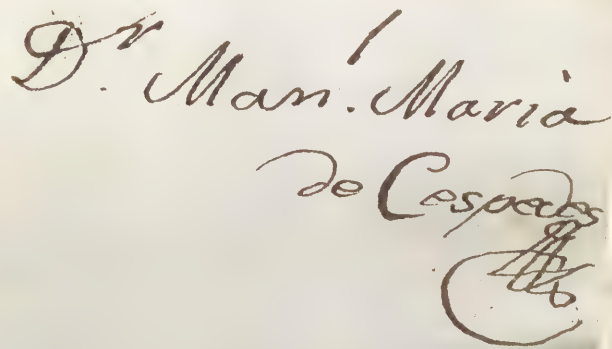 Dr. Manl. Marià
de Cespedes